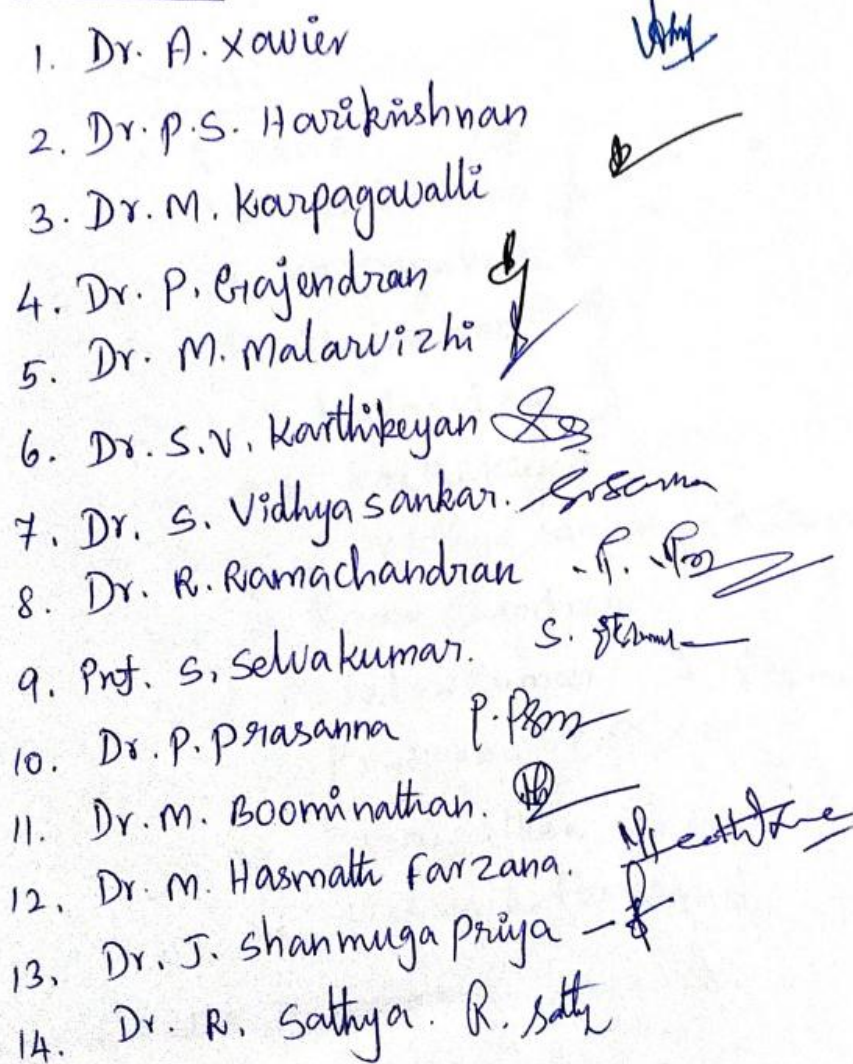 1. Dr. A. Xavier
2. Dr. P.S. Harikrishnan
3. Dr. M. Karpagavalli
4. Dr. P. Gajendran
5. Dr. M. Malarvizhi
6. Dr. S.V. Karthikeyan
7. Dr. S. Vidhya sankar.
8. Dr. R. Ramachandran
9. Prof. S. Selvakumar. S.
10. Dr. P. Prasanna P.
11. Dr. M. Boominathan.
12. Dr. M. Hasmath Farzana.
13. Dr. J. Shanmuga Priya
14. Dr. R. Sathya. R.